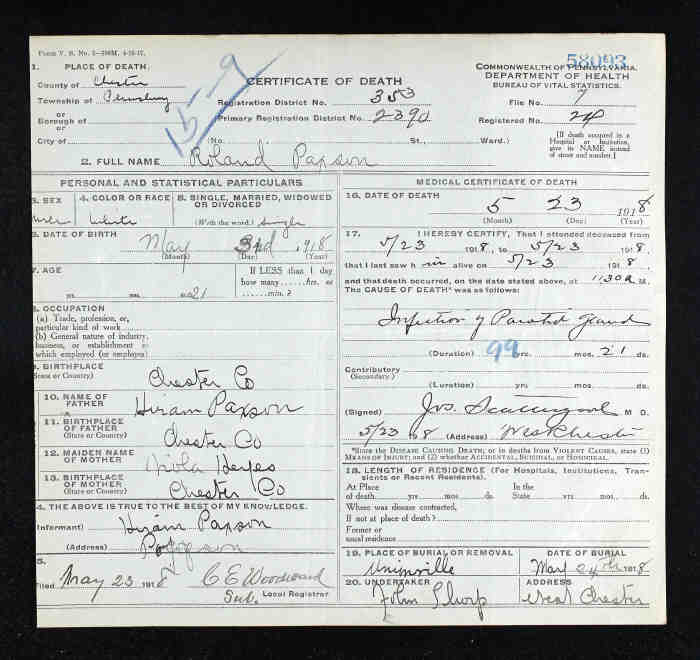 Form V. S. No. 5-
58093
1. PLACE OF DEATH.
County of Chester
Township of
or
Borough of
or
City of
15-9
CERTIFICATE OF DEATH
Registration District No. 353
Primary Registration District No. 2390
(No. St., Ward.)
COMMONWEALTH OF PENNSYLVANIA.
DEPARTMENT OF HEALTH
BUREAU OF VITAL STATISTICS.
File No. 7
Registered No. 24
[If death occurred in a
Hospital or Institution,
give its NAME instead
of street and number.]
2. FULL NAME Roland Paxson
PERSONAL AND STATISTICAL PARTICULARS
3. SEX
4. COLOR OR RACE
White
5. SINGLE, MARRIED, WIDOWED
OR DIVORCED
(Write the word.) Single
6. DATE OF BIRTH
May 3rd 1918
(Month) (Day) (Year)
7. AGE
yrs. mos. 21
If LESS than 1 day
how many......hrs. or
......min.?
8. OCCUPATION
(a) Trade, profession, or,
particular kind of work
(b) General nature of industry,
business, or establishment in
which employed (or employer)
9. BIRTHPLACE
(State or Country)
Chester Co
10. NAME OF
FATHER
Hiram Paxson
11. BIRTHPLACE
OF FATHER
(State or Country)
Chester Co
12. MAIDEN NAME
OF MOTHER
Viola Heyes
13. BIRTHPLACE
OF MOTHER
(State or Country)
Chester Co
14. THE ABOVE IS TRUE TO THE BEST OF MY KNOWLEDGE.
(Informant) Hiram Paxson
(Address) Pocopson
15.
Filed May 23 1918 C E Woodward
Sub. Local Registrar
MEDICAL CERTIFICATE OF DEATH
16. DATE OF DEATH
5 23 1918
(Month) (Day) (Year)
17. I HEREBY CERTIFY, That I attended deceased from
5/23 1918, to 5/23 1918,
that I last saw him alive on 5/23 1918
and that death occurred, on the date stated above, at 1130 a M.
The CAUSE OF DEATH* was as follows:
Infection of Parotid Gland
(Duration) 99 yrs. mos. 21 ds.
Contributory
(Secondary)
(Duration) yrs mos. ds.
(Signed) Jos. M D.
5/23 1918 (Address) West Chester
*State the DISEASE CAUSING DEATH; or in deaths from VIOLENT CAUSES, state (1)
MEANS OF INJURY; and (2) whether ACCIDENTAL, SUICIDAL, or HOMICIDAL.
18. LENGTH OF RESIDENCE (For Hospitals, Institutions, Tran-
sients or Recent Residents).
At Place In the
of death yrs. mos. ds. State yrs. mos. ds.
Where was disease contracted,
If not at place of death?
Former or
usual residence
19. PLACE OF BURIAL OR REMOVAL
Unionville
DATE OF BURIAL
May 24th 1918
20. UNDERTAKER
John Thorp
ADDRESS
West Chester